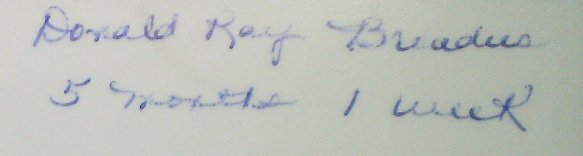 Donald Ray Breadus
5 months 1 week